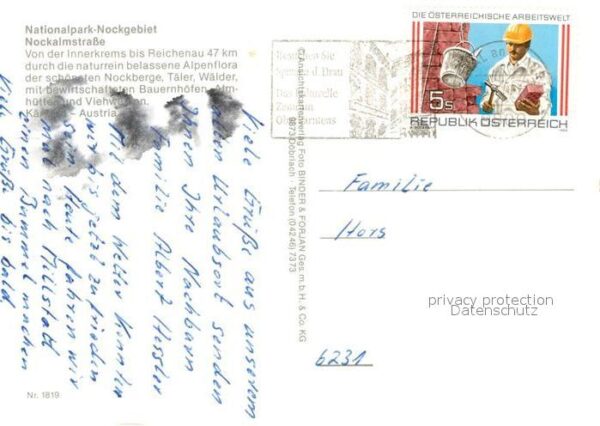 Nationalpark-Nockgebiet
Nockalmstraße
Von der Innerkrems bis Reichenau 47 km
durch die naturrein belassene Alpenflora
der schönsten Nockberge, Täler, Wälder,
mit bewirtschafteten Bauernhöfen, Alm-
hütten und Viehweiden.
Kärnten - Austria
Nr. 1819
Viele Grüße aus unserem
Urlaubsort senden
Ihnen Ihre Nachbarn
Familie Albert Hessler
Mit dem Wetter konnten
wir bis jetzt zufrieden
Heute fahren wir
nach Millstatt
einen Bummel machen
Grüße bis bald
© Ansichtskartenverlag Foto BINDER & FORJAN Ges. m. b. H. & Co. KG
9873 Döbriach · Telefon (04246) 7373
Besuchen Sie
Spittal a. d. Drau
Das kulturelle
Zentrum
Oberkärntens
DIE ÖSTERREICHISCHE ARBEITSWELT
5s
REPUBLIK ÖSTERREICH
Familie
Hors
6231
privacy protection
Datenschutz